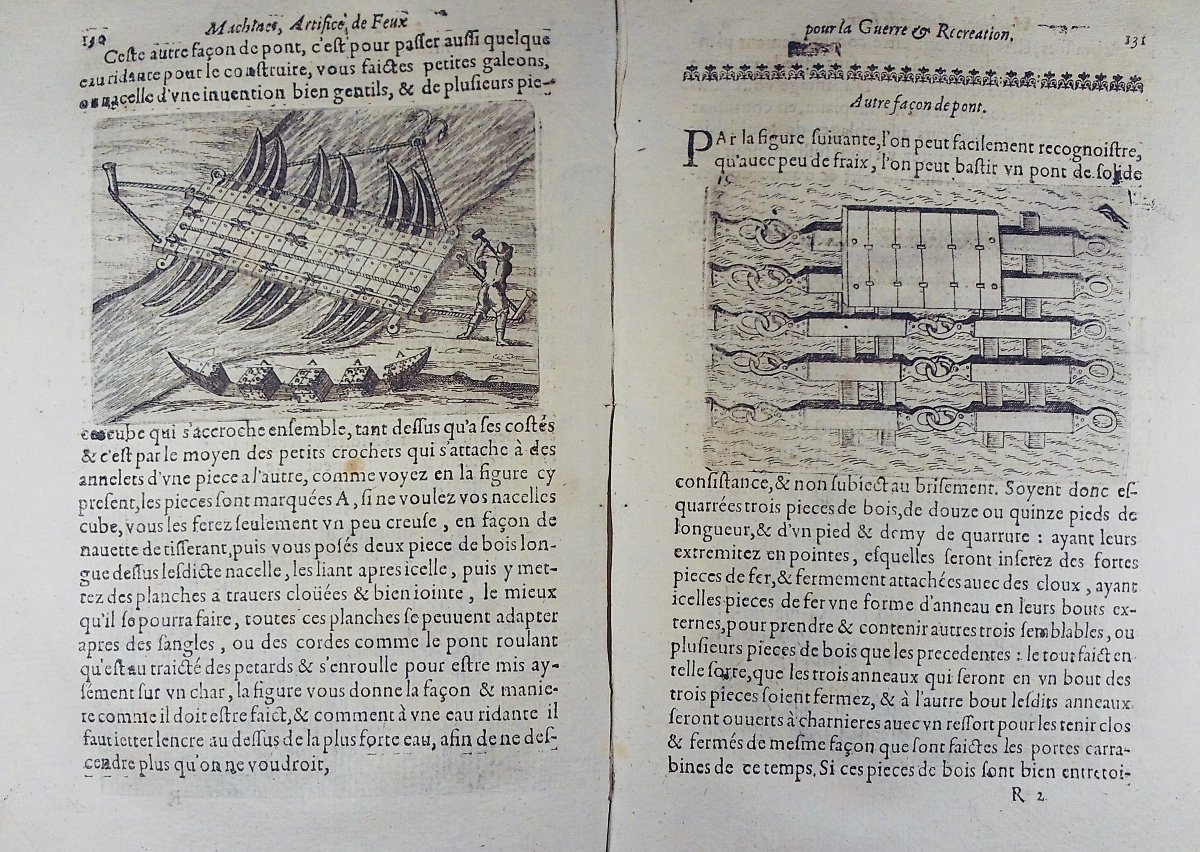 130
Machines, Artifice, de Feux
Ceste autre façon de pont, c'est pour passer aussi quelque
eau ridante pour le construire, vous faictes petites galeons,
ou nacelle d'vne inuention bien gentils, & de plusieurs pie-
ces cube qui s'accroche ensemble, tant dessus qu'a ses costés
& c'est par le moyen des petits crochets qui s'attache à des
annelets d'vne piece a l'autre, comme voyez en la figure cy
present, les pieces sont marquées A, si ne voulez vos nacelles
cube, vous les ferez seulement vn peu creuse, en façon de
nauette de tisserant, puis vous posés deux piece de bois lon-
gue dessus lesdicte nacelle, les liant apres icelle, puis y met-
tez des planches a trauers cloüées & bien iointe, le mieux
qu'il se pourra faire, toutes ces planches se peuuent adapter
apres des sangles, ou des cordes comme le pont roulant
qu'est au traicté des petards & s'enroulle pour estre mis ay-
sément sur vn char, la figure vous donne la façon & manie-
re comme il doit estre faict, & comment à vne eau ridante il
faut ietter lencre au dessus de la plus forte eau, afin de ne des-
cendre plus qu'on ne voudroit,
pour la Guerre & Recreation.
131
Autre façon de pont.
PAr la figure suiuante, l'on peut facilement recognoistre,
qu'auec peu de fraix, l'on peut bastir vn pont de solide
consistance, & non subiect au brisement. Soyent donc es-
quarrées trois pieces de bois, de douze ou quinze pieds de
longueur, & d'vn pied & demy de quarrure : ayant leurs
extremitez en pointes, esquelles seront inserez des fortes
pieces de fer, & fermement attachées auec des cloux, ayant
icelles pieces de fer vne forme d'anneau en leurs bouts ex-
ternes, pour prendre & contenir autres trois semblables, ou
plusieurs pieces de bois que les precedentes : le tout faict en
telle sorte, que les trois anneaux qui seront en vn bout des
trois pieces soient fermez, & à l'autre bout lesdits anneaux
seront ouuerts à charnieres auec vn ressort pour les tenir clos
& fermés de mesme façon que sont faictes les portes carra-
bines de ce temps. Si ces pieces de bois sont bien entretoi-
R 2